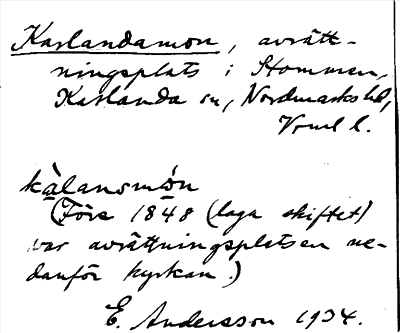 Karlandamon, avrätt-
ningsplats i Stommen,
Karlanda sn, Nordmarks hd,
Vrml l.
kàlansmón
(Före 1848 (laga skiftet)
var avrättningsplatsen ne-
danför kyrkan.)
E. Andersson 1934.